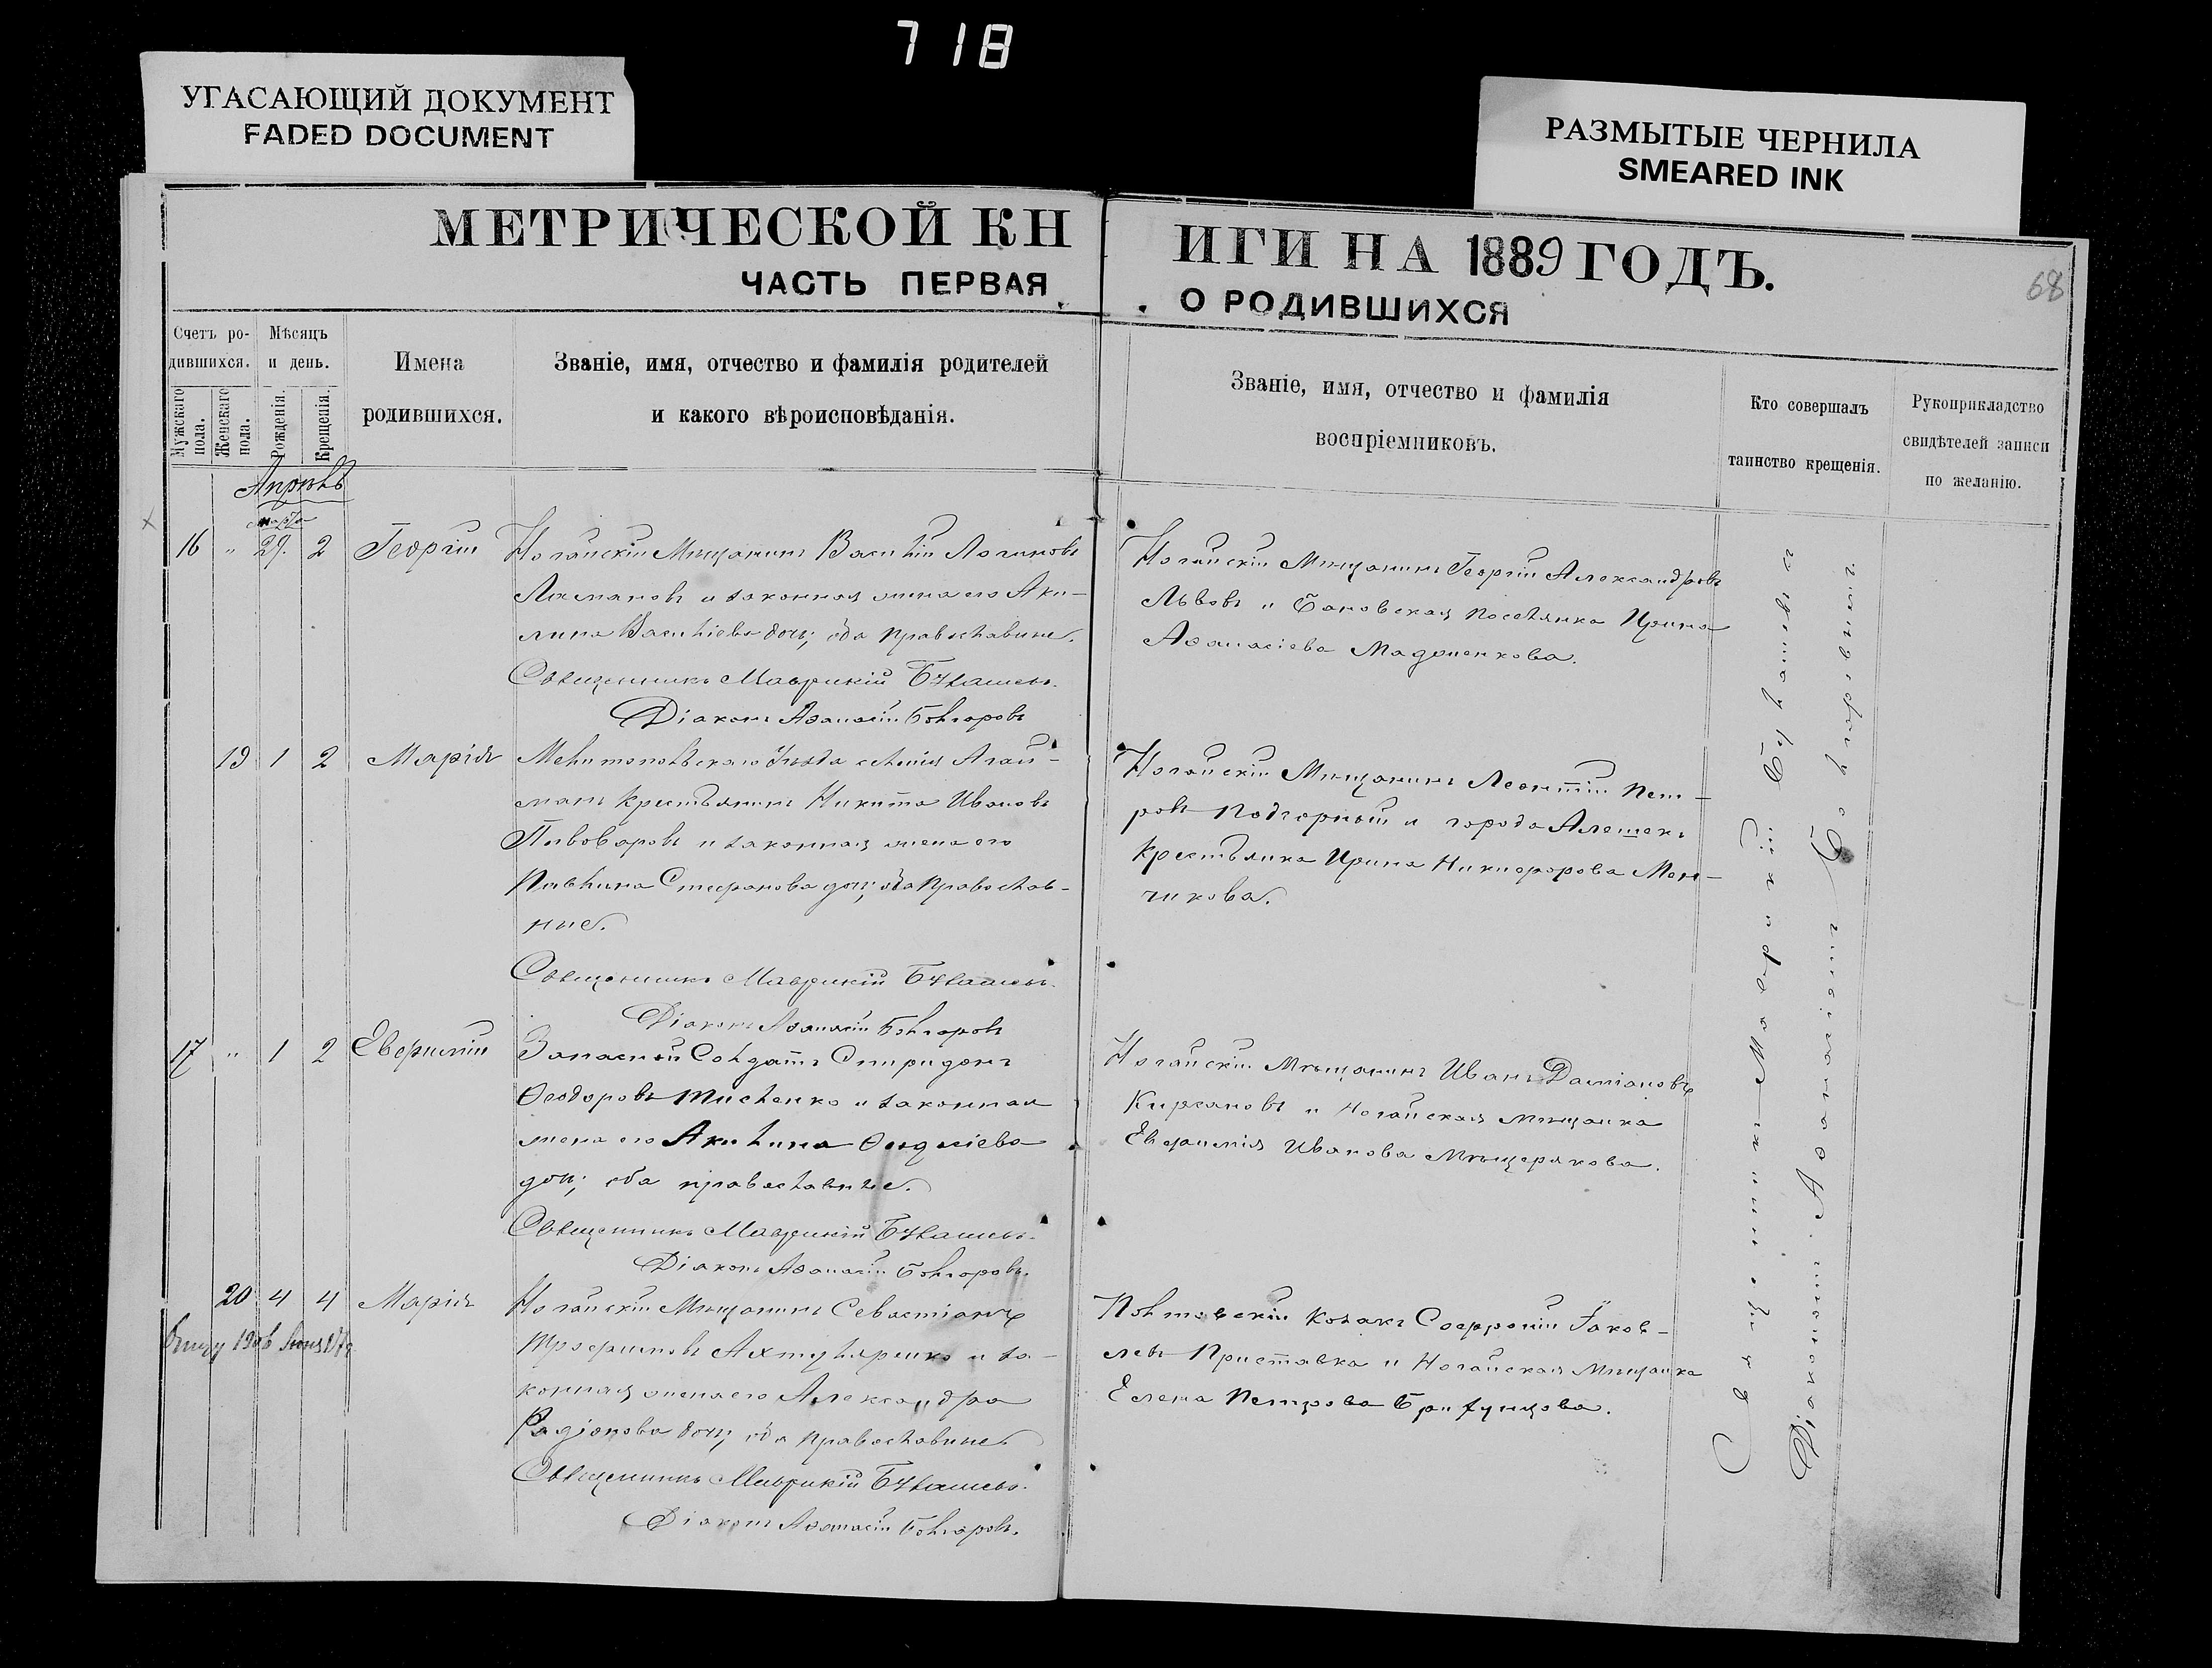 718
УГАСАЮЩИЙ ДОКУМЕНТ
FADED DOCUMENT
РАЗМЫТЫЕ ЧЕРНИЛА
SMEARED INK
МЕТРИЧЕСКОЙ КНИГИ НА 1889 ГОДЪ.
ЧАСТЬ ПЕРВАЯ О РОДИВШИХСЯ
68
Счетъ ро-
дившихся.
Мужскаго пола.
Женскаго пола.
Мѣсяцъ
и день.
Рожденія.
Крещенія.
Имена
родившихся.
Званіе, имя, отчество и фамилія родителей
и какого вѣроисповѣданія.
Званіе, имя, отчество и фамилія
воспріемниковъ.
Кто совершалъ
таинство крещенія.
Рукоприкладство
свидѣтелей записи
по желанію.
Апрѣль
марта
16 " 29. 2 Георгій
Ногайскій Мѣщанинъ Василій Логиновъ
и законная жена его Аки-
лина Васильева дочь, оба православные.
Священникъ Маврикій
Діаконъ Аѳанасій Болгаровъ
Ногайскій Мѣщанинъ Георгій Александровъ
Львовъ и Поселянка Ирина
Аѳанасіева
19 1 2 Марія
Мелитопольскаго Уѣзда селенія Агай-
манъ Крестьянинъ Никита Ивановъ
Пивоваровъ и законная жена его
Стефанова дочь, оба Православ-
ные.
Священникъ Маврикій
Діаконъ Аѳанасій Болгаровъ
Ногайскій Мѣщанинъ Леонтій Пет-
ровъ Подгорный и города Алешекъ
Крестьянка Ирина Никифорова Мен-
чикова.
17 " 1 2 Евфимій
Запасной Солдатъ Спиридонъ
Ѳеодоровъ и законная
жена его Акилина
дочь, оба православные.
Священникъ Маврикій
Діаконъ Аѳанасій Болгаровъ.
Ногайскій Мѣщанинъ Иванъ Даміановъ
Кирсановъ и Ногайская мѣщанка
Евфимія Иванова Мѣщерякова.
20 4 4 Марія
Ногайскій Мѣщанинъ Севастіанъ
Трофимовъ и за-
конная жена его Александра
Радіонова дочь, оба православные
Священникъ Маврикій
Діаконъ Аѳанасій Болгаровъ.
Полтавскій Козакъ Софроній Іаков-
левъ Приставка и Ногайская Мѣщанка
Елена Петрова
Священникъ Маврикій
Діаконъ Аѳанасій Болгаровъ.